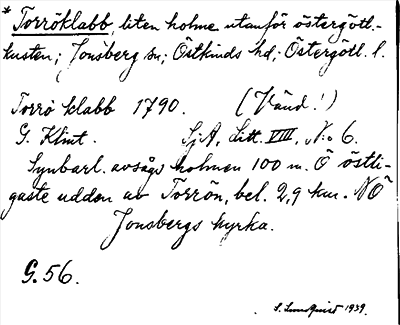 * Torröklabb, liten holme utanför östergötl.-
kusten; Jonsberg sn; Östkinds hd; Östergötl. l.
Torrö klabb 1790. (Vänd!)
G. Klint. SjA, Litt. VIII, N:o 6.
Synbarl. avsågs holmen 100 m. Ö östli-
gaste udden av Torrön, bel. 2,9 km. NÖ
Jonsbergs kyrka.
G. 56.
S. Lundquist 1939.